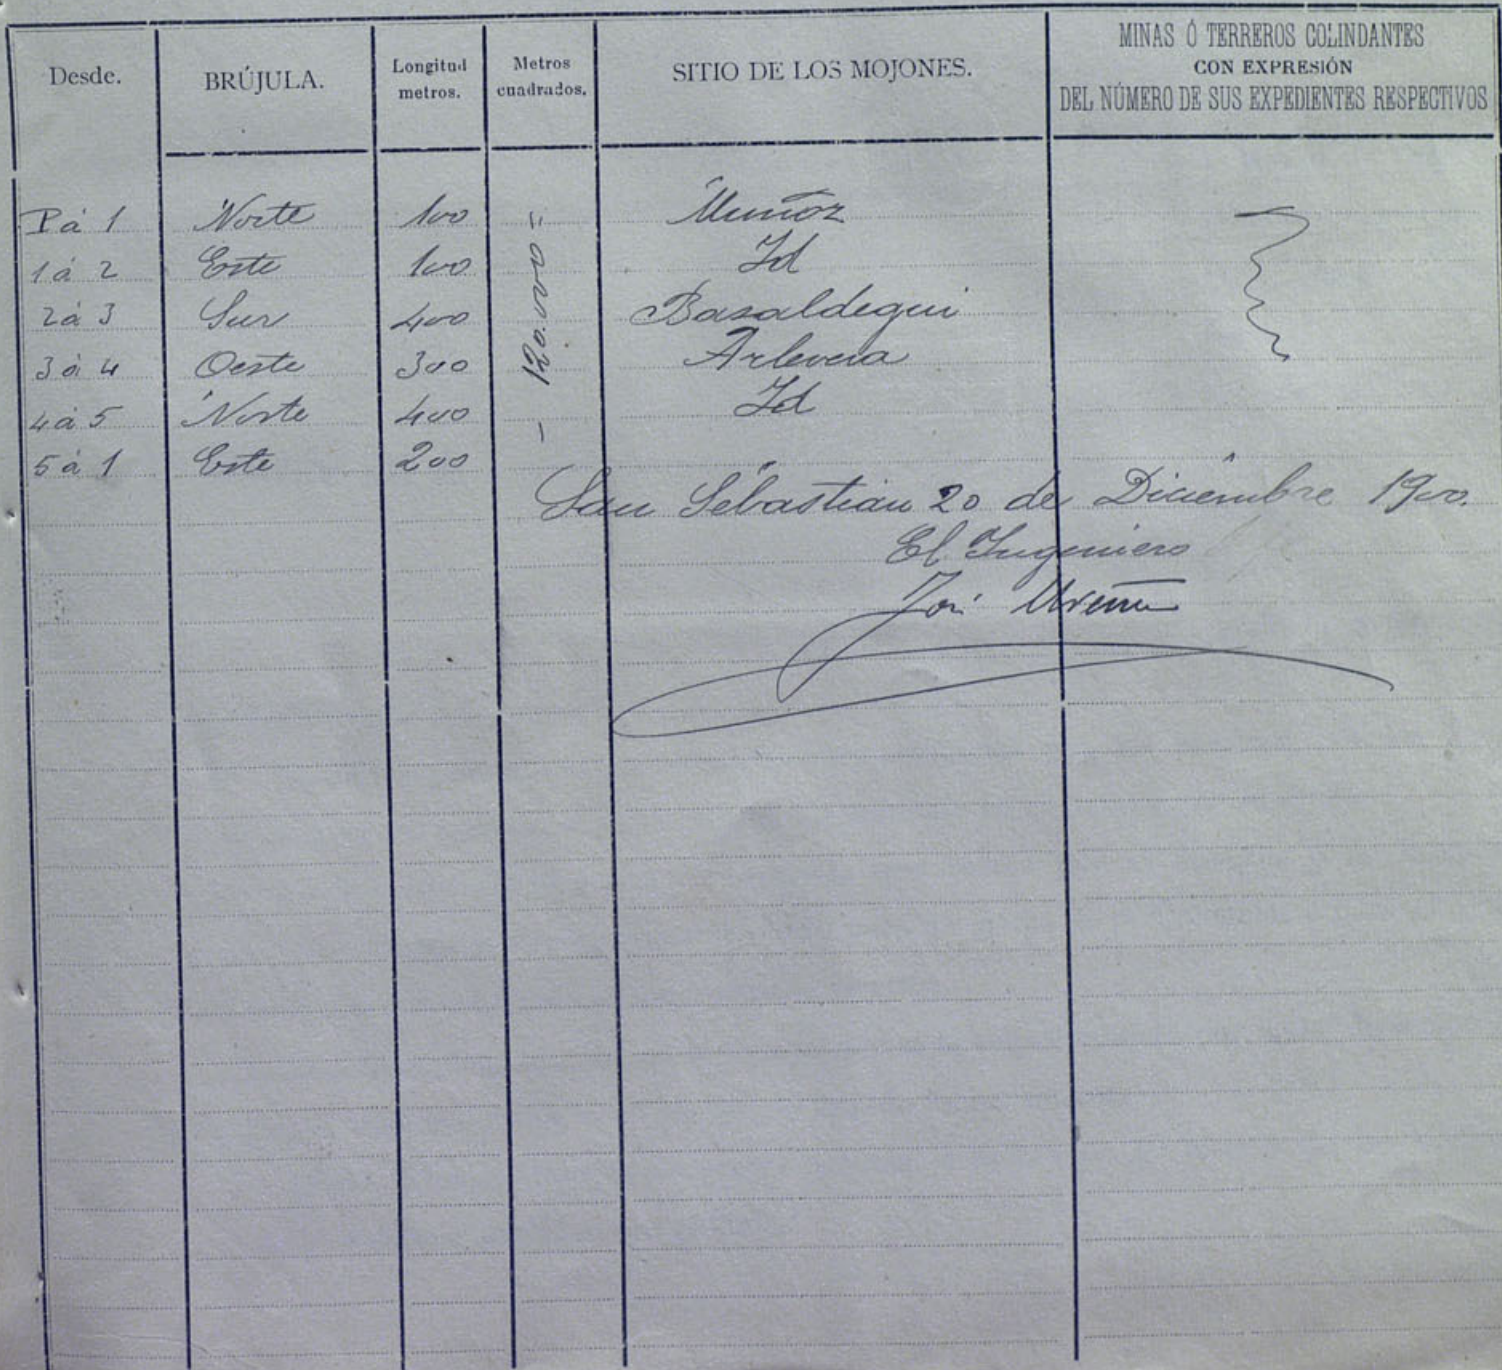 Desde. BRÚJULA. Longitud metros. Metros cuadrados. SITIO DE LOS MOJONES. MINAS Ó TERREROS COLINDANTES
CON EXPRESIÓN
DEL NÚMERO DE SUS EXPEDIENTES RESPECTIVOS
P á 1 Norte 100 Muñoz
1 á 2 Este 100 Id
2 á 3 Sur 400 Basaldegui
3 á 4 Oeste 300
4 á 5 Norte 400 Id
5 á 1 Este 200
- 120.000 =
San Sebastián 20 de Diciembre 1900.
El Ingeniero
José